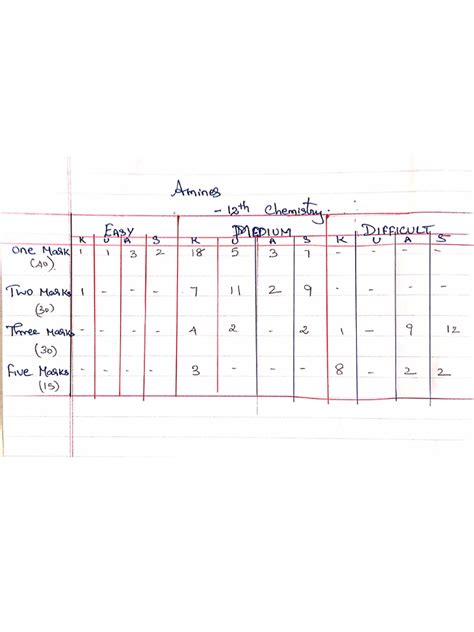 Amines
- 12th Chemistry.
EASY MEDIUM DIFFICULT
K U A S K U A S K U A S
One Mark 1 1 3 2 18 5 3 7 - - - -
(40)
Two Marks 1 - - - 7 11 2 9 - - - -
(30)
Three Marks - - - - 4 2 - 2 1 - 9 12
(30)
Five Marks - - - - 3 - - - 8 - 2 2
(15)